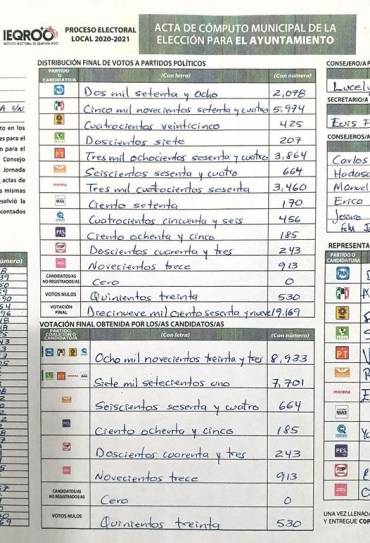 IEQROO
PROCESO ELECTORAL
LOCAL 2020-2021
ACTA DE CÓMPUTO MUNICIPAL DE LA
ELECCIÓN PARA EL AYUNTAMIENTO
DISTRIBUCIÓN FINAL DE VOTOS A PARTIDOS POLÍTICOS
PARTIDO O CANDIDATURA (Con letra) (Con número)
Dos mil setenta y ocho 2,078
Cinco mil novecientos setenta y cuatro 5,974
Cuatrocientos veinticinco 425
Doscientos siete 207
PT Tres mil ochocientos sesenta y cuatro 3,864
Seiscientos sesenta y cuatro 664
morena Tres mil cuatrocientos sesenta 3,460
MAS Ciento setenta 170
Cuatrocientos cincuenta y seis 456
PES Ciento ochenta y cinco 185
Doscientos cuarenta y tres 243
Novecientos trece 913
CANDIDATOS/AS NO REGISTRADOS/AS Cero 0
VOTOS NULOS Quinientos treinta 530
VOTACIÓN FINAL Diecinueve mil ciento sesenta y nueve 19,169
VOTACIÓN FINAL OBTENIDA POR LOS/AS CANDIDATOS/AS
PARTIDO, COALICIÓN O CANDIDATURA (Con letra) (Con número)
Ocho mil novecientos treinta y tres 8,933
Siete mil setecientos uno 7,701
Seiscientos sesenta y cuatro 664
PES Ciento ochenta y cinco 185
Doscientos cuarenta y tres 243
Novecientos trece 913
CANDIDATOS/AS NO REGISTRADOS/AS Cero 0
VOTOS NULOS Quinientos treinta 530
CONSEJERO/A P
SECRETARIO/A
CONSEJEROS/A
Carlos
Manuel
Erica
REPRESENTA
PARTIDO O CANDIDATURA
PT
morena
MAS
PES
UNA VEZ LLENADA
Y ENTREGUE COP